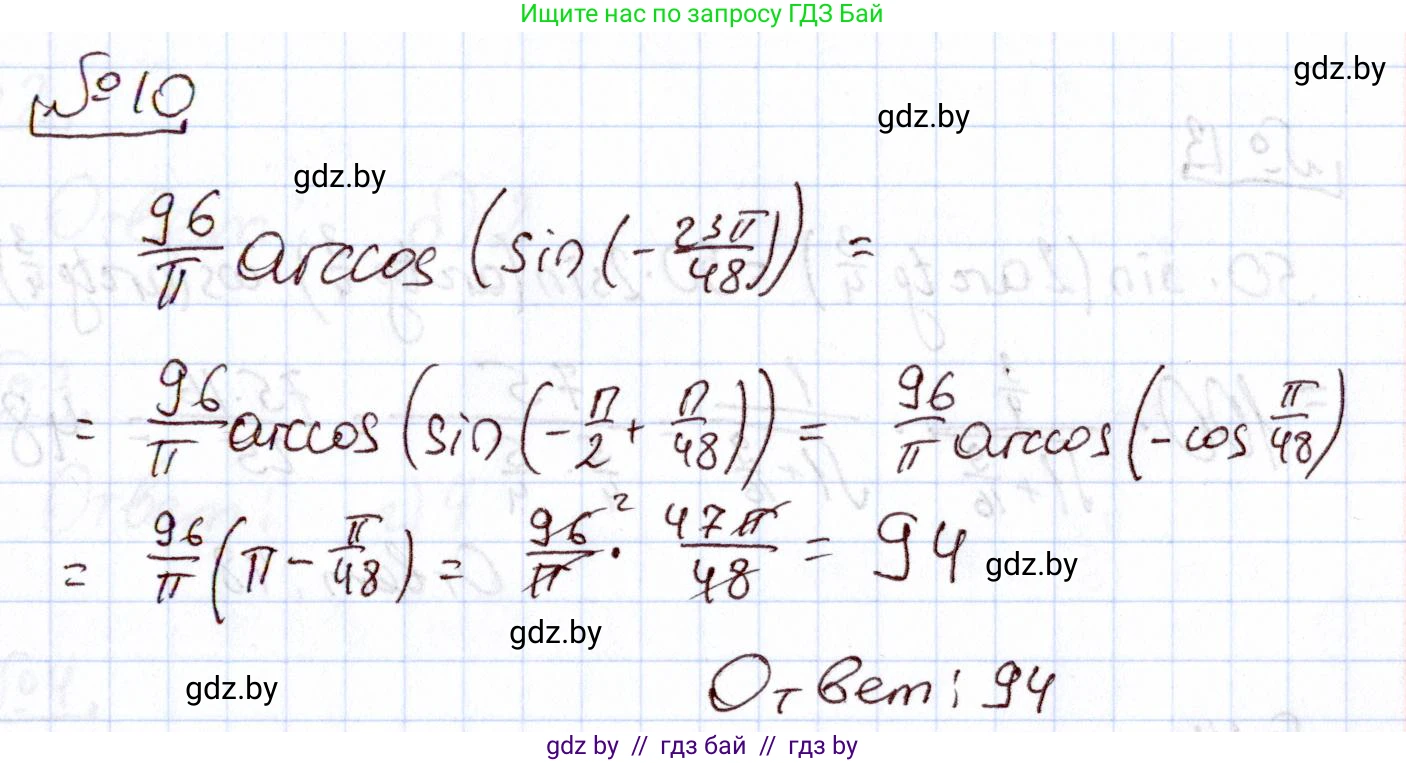 Ищите нас по запросу ГДЗ Бай
gdz.by
№ 10
gdz.by
gdz.by
96/π arccos (sin (- 23π/48)) =
= 96/π arccos (sin (- π/2 + π/48)) = 96/π arccos (- cos π/48)
= 96/π (π - π/48) = 96/π ² · 47π/48 = 94
gdz.by
gdz.by
gdz.by
Ответ: 94
gdz by // гдз бай // гдз by